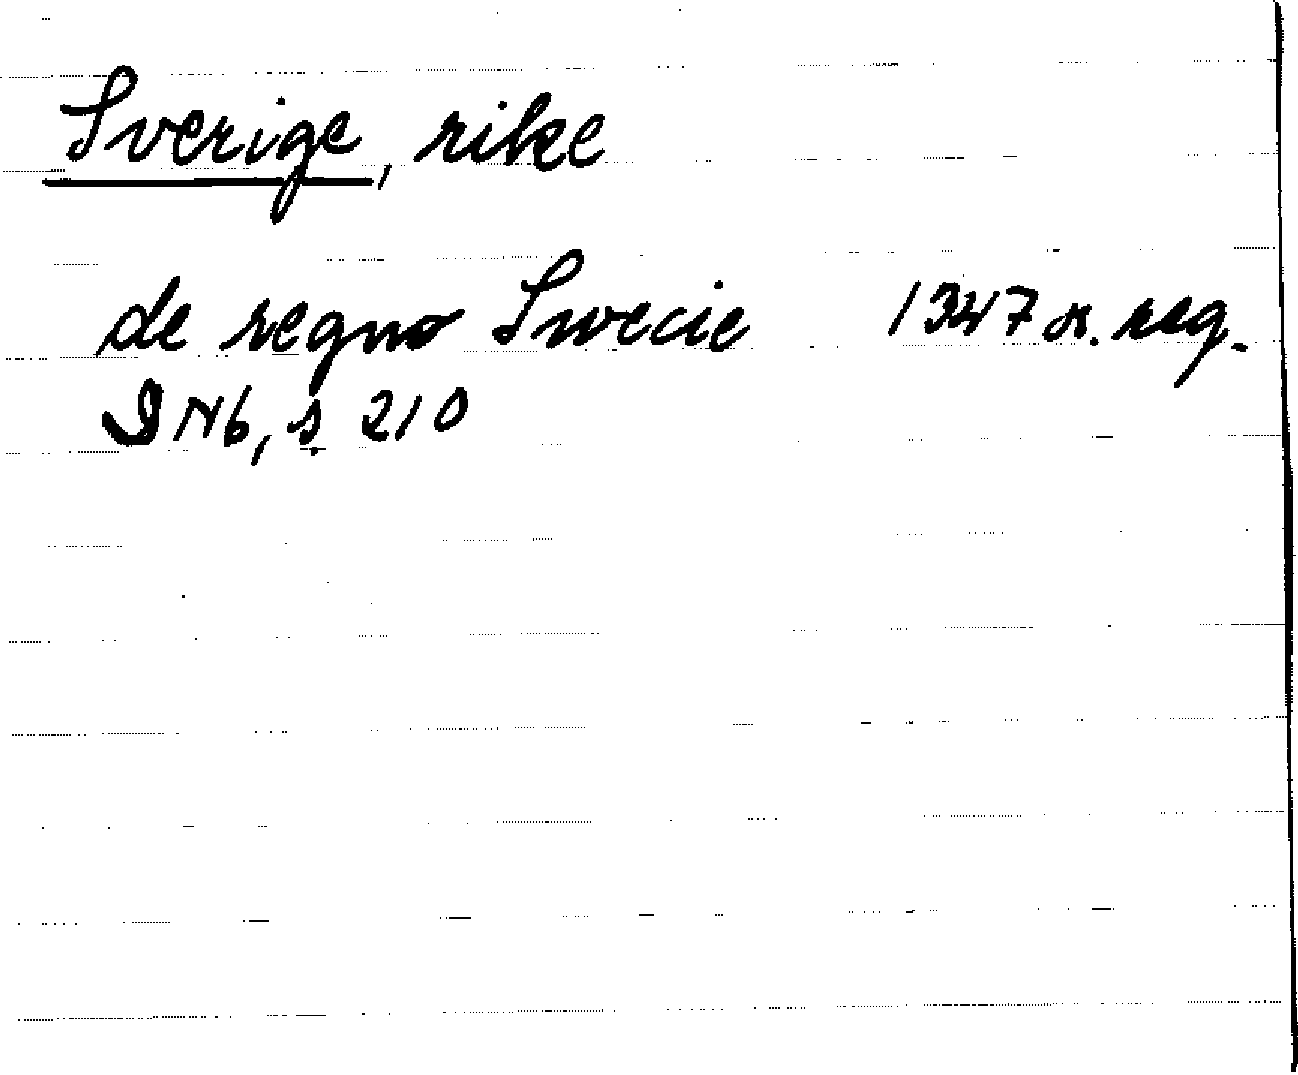 Sverige, rike
de regno Swecie 1347 or. reg.
DN6, s. 210